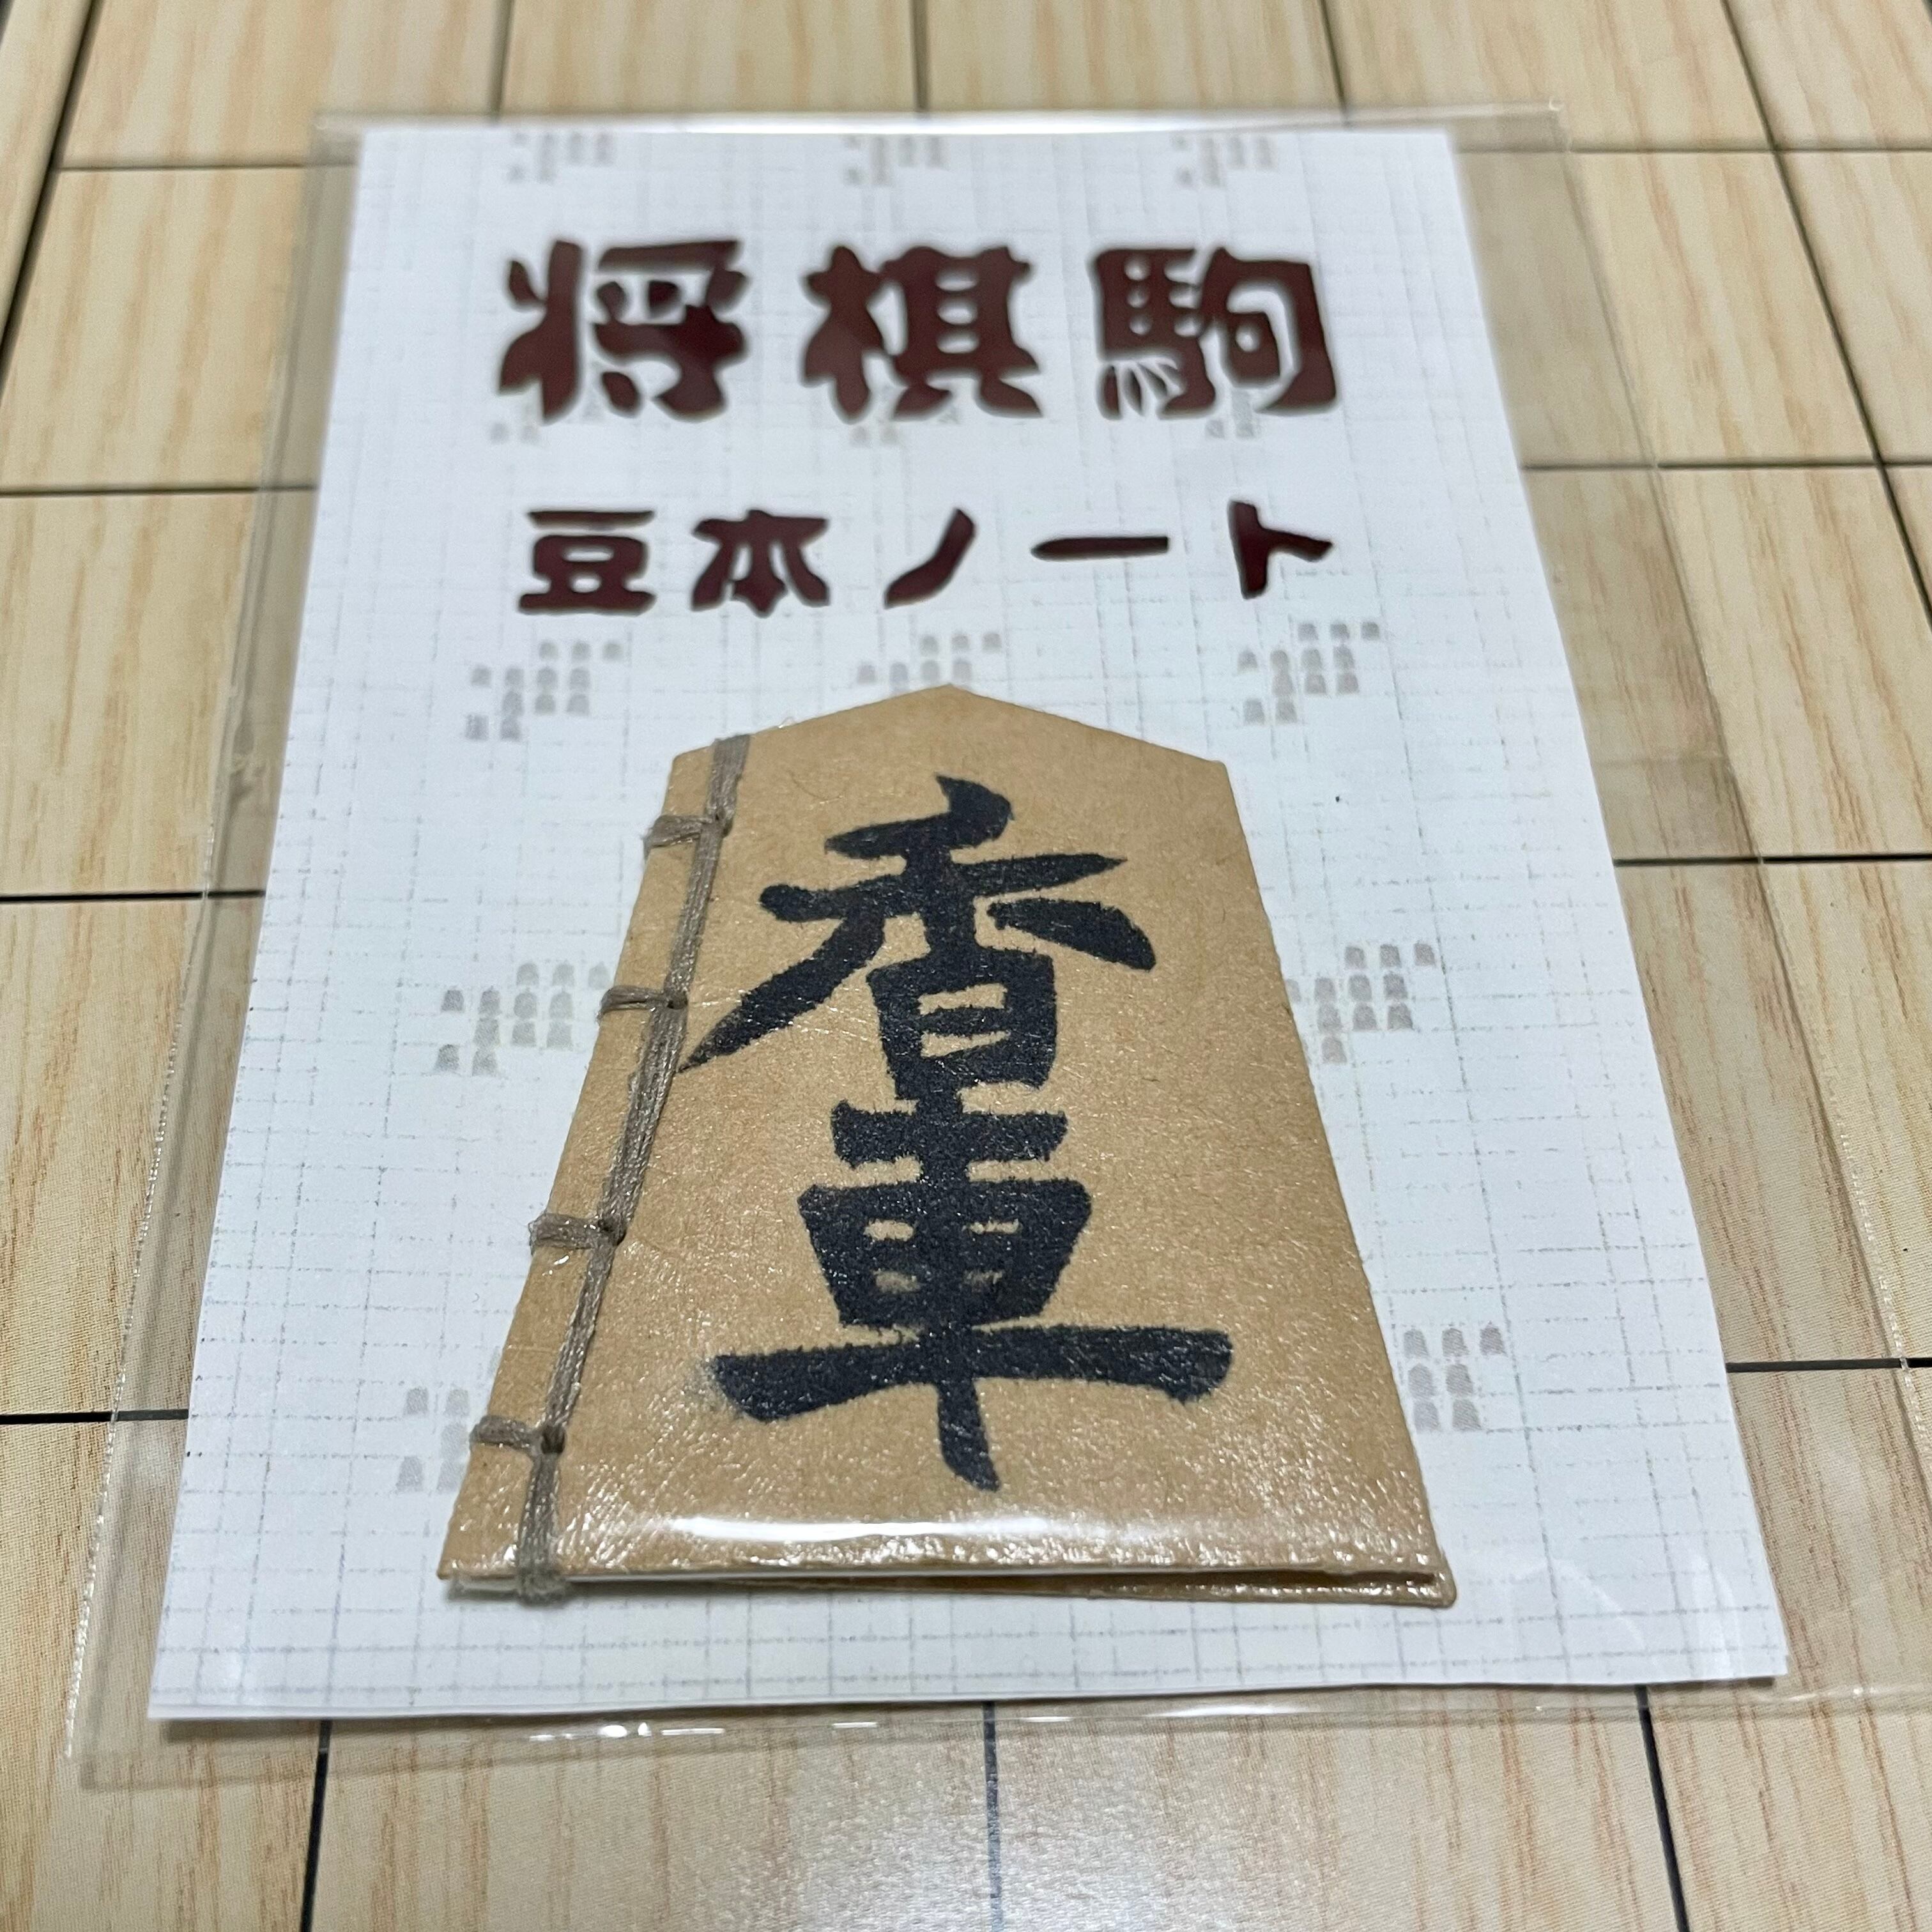 将棋駒
豆本ノート
香車